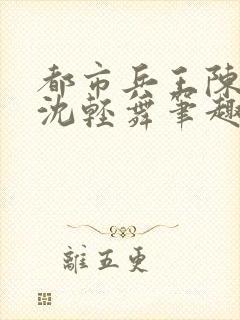 都市兵王陳
沈輕舞筆趣
離五更